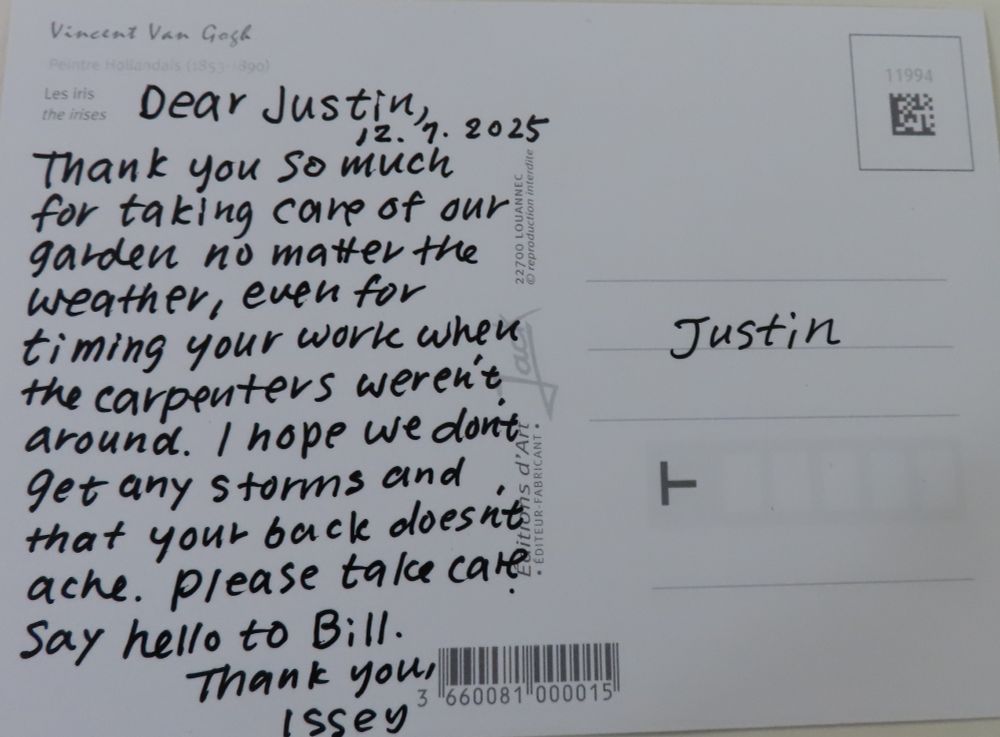 Vincent Van Gogh
Peintre Hollandais (1853-1890)
Les iris
the irises
Dear Justin,
12. 7. 2025
Thank you so much
for taking care of our
garden no matter the
weather, even for
timing your work when
the carpenters weren't
around. I hope we don't
get any storms and
that your back doesn't
ache. Please take care.
Say hello to Bill.
Thank you,
Issey
22700 LOUANNEC
© reproduction interdite
Jack
Editions d'Art
• ÉDITEUR-FABRICANT •
3 660081 000015
11994
Justin
T